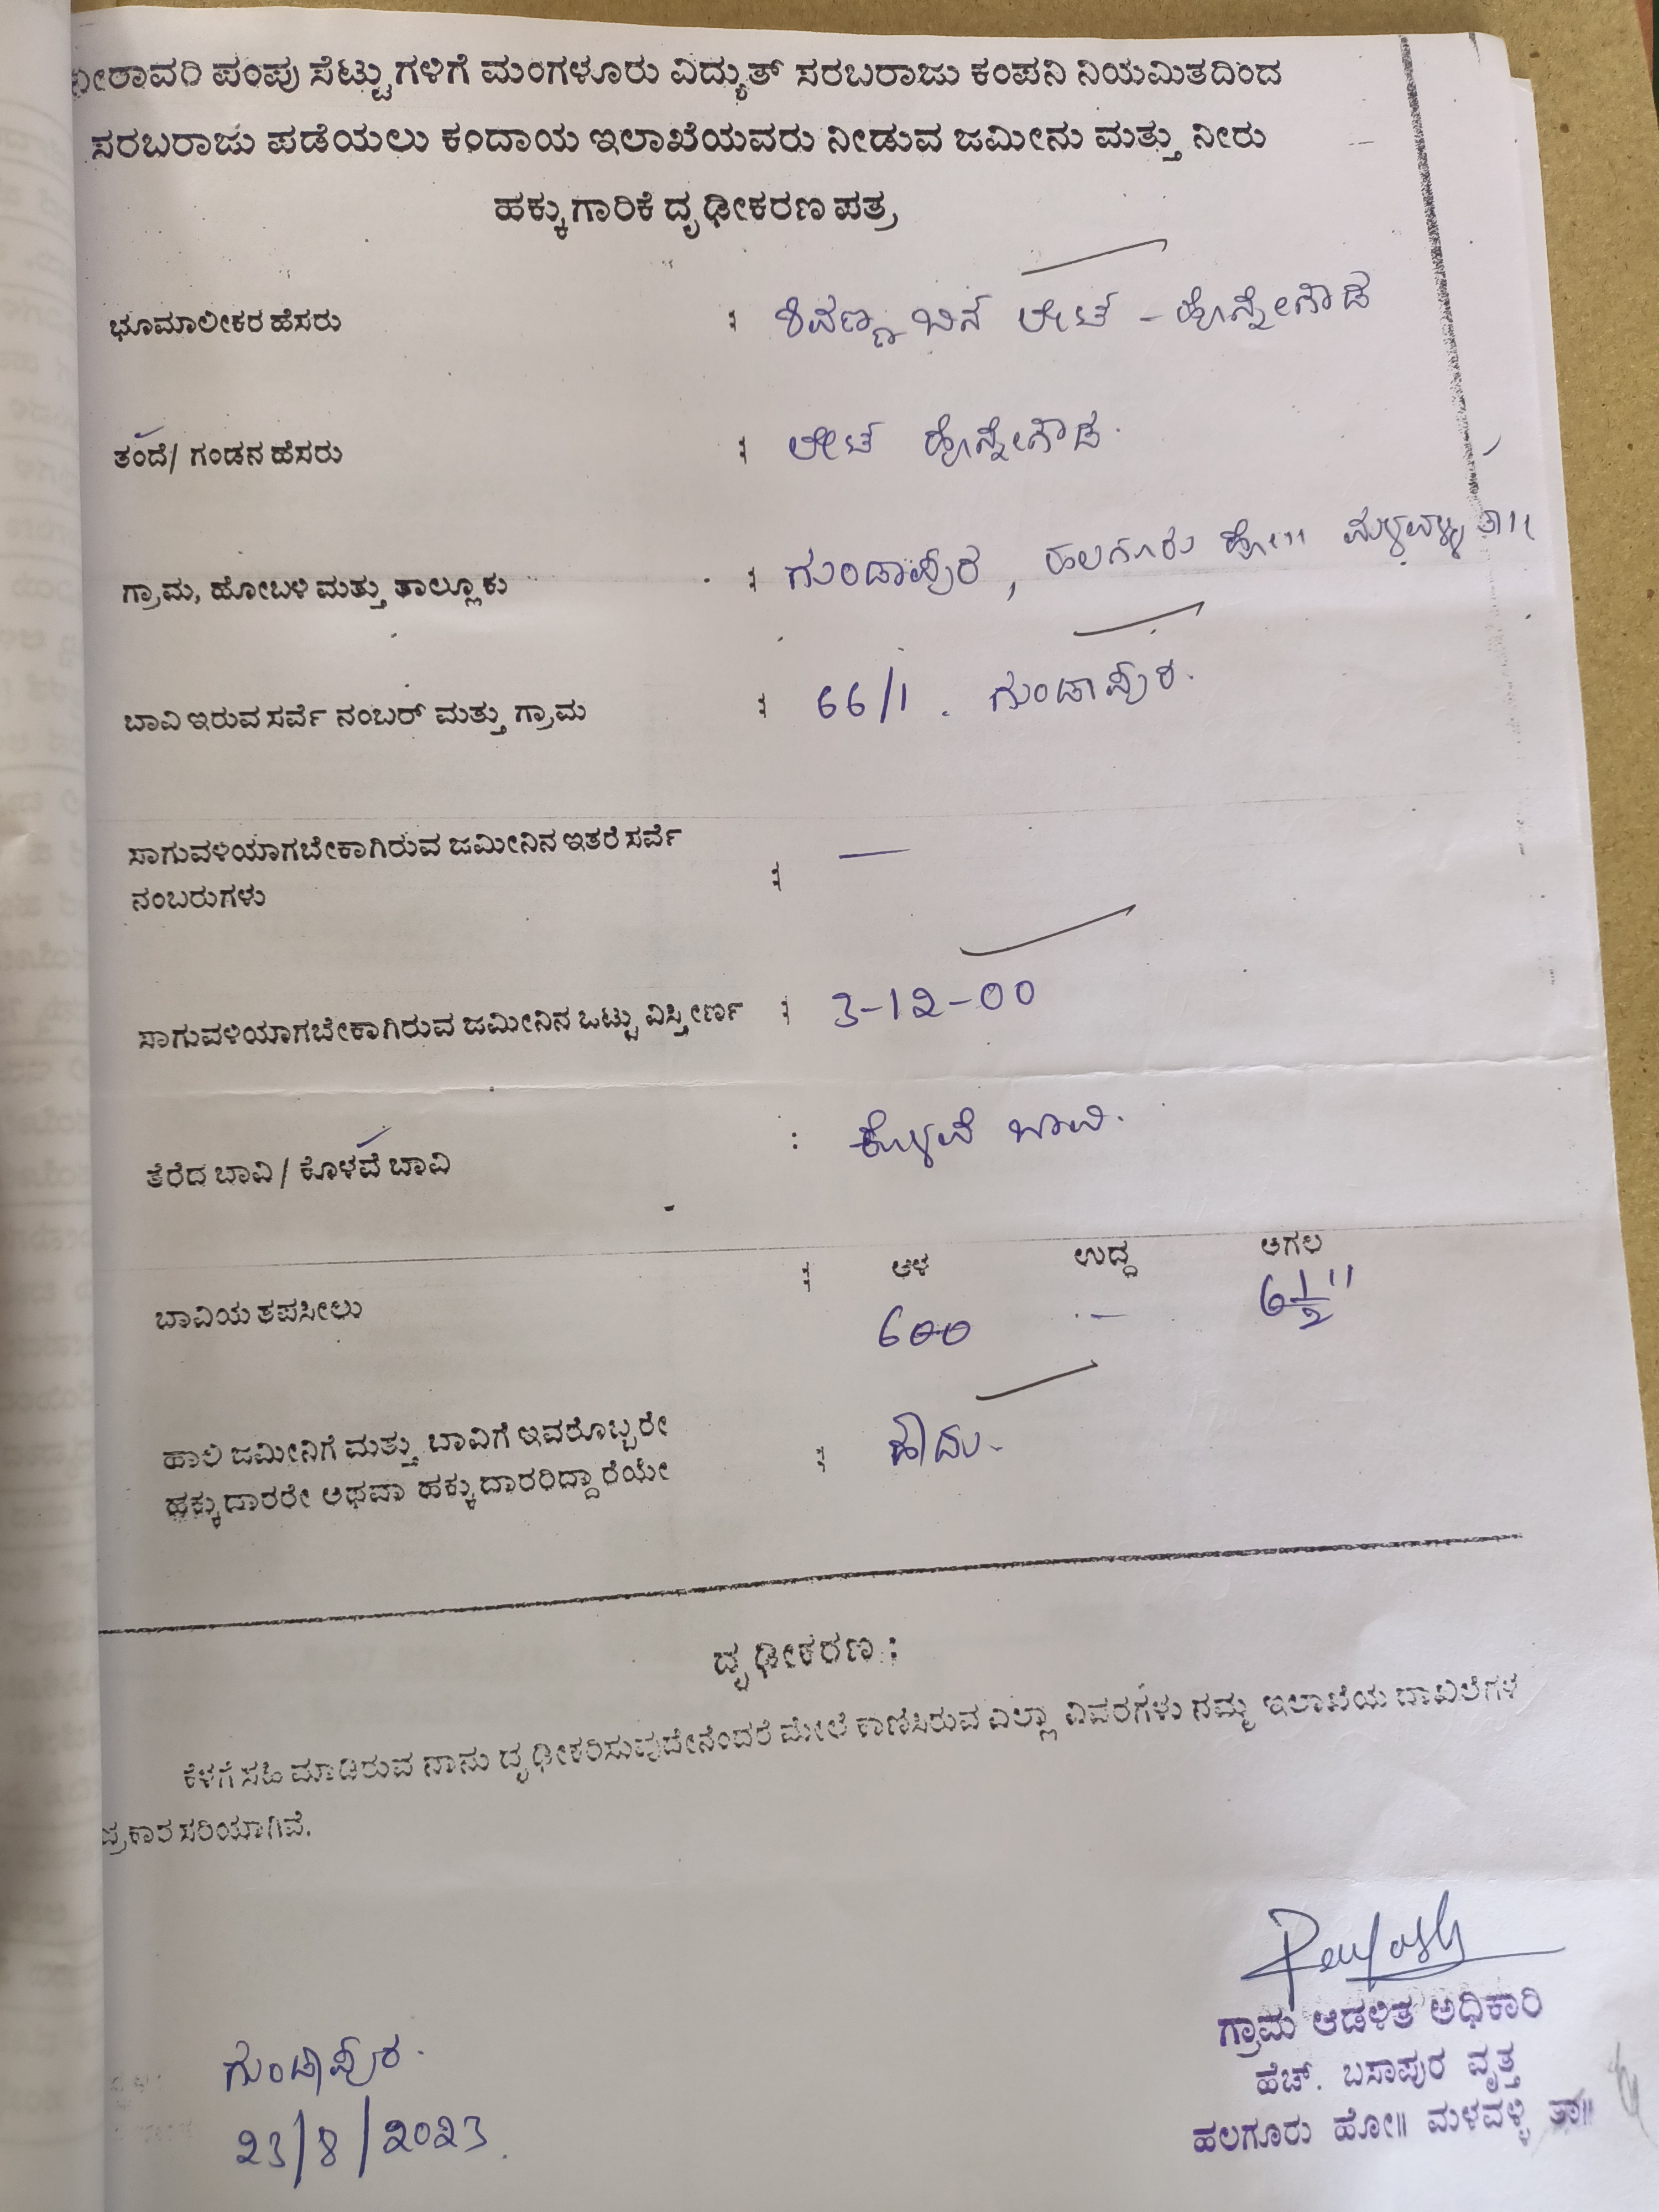 ನೀರಾವರಿ ಪಂಪು ಸೆಟ್ಟುಗಳಿಗೆ ಮಂಗಳೂರು ವಿದ್ಯುತ್ ಸರಬರಾಜು ಕಂಪನಿ ನಿಯಮಿತದಿಂದ
ಸರಬರಾಜು ಪಡೆಯಲು ಕಂದಾಯ ಇಲಾಖೆಯವರು ನೀಡುವ ಜಮೀನು ಮತ್ತು ನೀರು
ಹಕ್ಕುಗಾರಿಕೆ ದೃಢೀಕರಣ ಪತ್ರ
ಭೂಮಾಲೀಕರ ಹೆಸರು : ಶಿವಣ್ಣ ಬಿನ್ ಲೇಟ್ - ಹೊನ್ನೇಗೌಡ
ತಂದೆ/ ಗಂಡನ ಹೆಸರು : ಲೇಟ್ ಹೊನ್ನೇಗೌಡ.
ಗ್ರಾಮ, ಹೋಬಳಿ ಮತ್ತು ತಾಲ್ಲೂಕು : ಗುಂಡಾಪುರ, ಹಲಗೂರು ಹೋ॥ ಮಳವಳ್ಳಿ ತಾ॥
ಬಾವಿ ಇರುವ ಸರ್ವೆ ನಂಬರ್ ಮತ್ತು ಗ್ರಾಮ : 66/1 . ಗುಂಡಾಪುರ.
ಸಾಗುವಳಿಯಾಗಬೇಕಾಗಿರುವ ಜಮೀನಿನ ಇತರೆ ಸರ್ವೆ
ನಂಬರುಗಳು : —
ಸಾಗುವಳಿಯಾಗಬೇಕಾಗಿರುವ ಜಮೀನಿನ ಒಟ್ಟು ವಿಸ್ತೀರ್ಣ : 3-12-00
ತೆರೆದ ಬಾವಿ / ಕೊಳವೆ ಬಾವಿ : ಕೊಳವೆ ಬಾವಿ.
ಆಳ ಉದ್ದ ಅಗಲ
ಬಾವಿಯ ತಪಸೀಲು : 600 — 6 1/2"
ಹಾಲಿ ಜಮೀನಿಗೆ ಮತ್ತು ಬಾವಿಗೆ ಇವರೊಬ್ಬರೇ
ಹಕ್ಕುದಾರರೇ ಅಥವಾ ಹಕ್ಕುದಾರರಿದ್ದಾರೆಯೇ : ಹೌದು-
ದೃಢೀಕರಣ :
ಕೆಳಗೆ ಸಹಿ ಮಾಡಿರುವ ನಾನು ದೃಢೀಕರಿಸುವುದೇನೆಂದರೆ ಮೇಲೆ ಕಾಣಿಸಿರುವ ಎಲ್ಲಾ ವಿವರಗಳು ನಮ್ಮ ಇಲಾಖೆಯ ದಾಖಲೆಗಳ
ಪ್ರಕಾರ ಸರಿಯಾಗಿವೆ.
ಗ್ರಾಮ ಆಡಳಿತ ಅಧಿಕಾರಿ
ಹೆಚ್. ಬಸಾಪುರ ವೃತ್ತ
ಹಲಗೂರು ಹೋ॥ ಮಳವಳ್ಳಿ ತಾ॥
ಗುಂಡಾಪುರ.
23/8/2023.